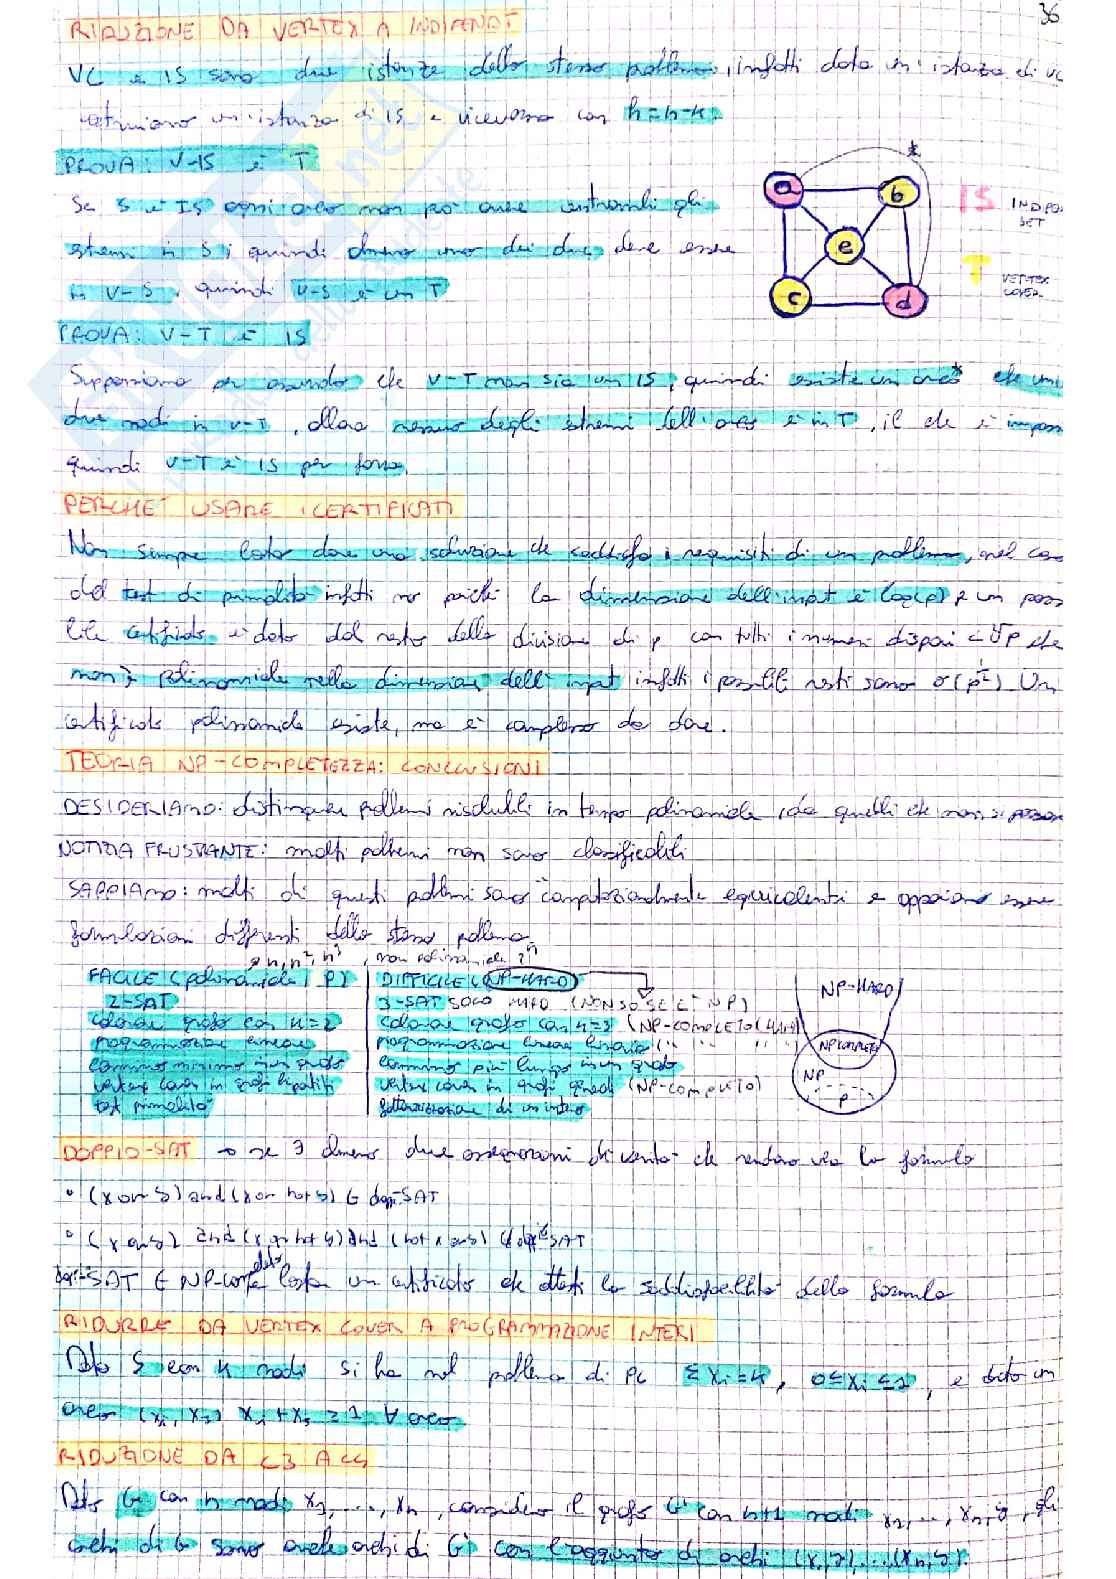 36
RIDUZIONE DA VERTEX A INDIPENDT
VC e IS sono due istanze dello stesso problema, infatti data un'istanza di VC
costruiamo un'istanza di IS e viceversa con h=n-k.
PROVA: V-IS è T
Se S è IS ogni arco non può avere entrambi gli
estremi in S, quindi almeno uno dei due deve essere
in V-S, quindi V-S è un T
PROVA: V-T è IS
Supponiamo per assurdo che V-T non sia un IS, quindi esiste un arco* che uni
due nodi in V-T, allora nessuno degli estremi dell'arco è in T, il che è imposs
quindi V-T è IS per forza.
a b e c d
*
IS INDIPEN SET
T VERTEX COVER
PERCHE' USARE I CERTIFICATI
Non sempre basta dare una soluzione che soddisfa i requisiti di un problema, nel caso
del test di primalità infatti no poiché la dimensione dell'input è log(p) e un poss
bile certificato è dato dal resto della divisione di p con tutti i numeri dispari ≤ √p che
non è polinomiale nella dimensione dell'input infatti i possibili resti sono O(p^½). Un
certificato polinomiale esiste, ma è complesso da dare.
TEORIA NP-COMPLETEZZA: CONCLUSIONI
DESIDERIAMO: distinguere problemi risolubili in tempo polinomiale da quelli che non si possono
NOTIZIA FRUSTRANTE: molti problemi non sono classificabili
SAPPIAMO: molti di questi problemi sono computazionalmente equivalenti e appaiono essere
formulazioni differenti dello stesso problema.
n, n², n³
non polinomiale 2ⁿ
FACILE (polinomiale, P)
2-SAT
colorare grafo con k=2
programmazione lineare
cammino minimo in un grafo
vertex cover in grafi bipartiti
test primalità
DIFFICILE (NP-HARD)
3-SAT SOLO HARD (NON SO SE È NP)
colorare grafo con k=3 (NP-completo (HARD)
programmazione lineare binaria (" " " ")
cammino più lungo in un grafo
vertex cover in grafi generali (NP-completo)
fattorizzazione di un intero
NP-HARD
NP COMPLETE
NP
P
DOPPIO-SAT → se ∃ almeno due assegnazioni di verità che rendono vera la formula
• (x or y) and (x or not y) ∈ doppi-SAT
• (x or y) and (x or not y) and (not x or y) ∉ doppi-SAT
doppi-SAT ∈ NP-completo basta un certificato che attesti la soddisfacibilità della formula
RIDURRE DA VERTEX COVER A PROGRAMMAZIONE INTERI
Dato S con k nodi si ha nel problema di PL Σxᵢ=k, 0≤xᵢ≤1, e dato un
arco (xᵢ, xⱼ) xᵢ+xⱼ ≥ 1 ∀ arco
RIDUZIONE DA C3 A C4
Dato G con n nodi x₁, ..., xₙ, considero il grafo G' con n+1 nodi x₁, ..., xₙ, y, gli
archi di G sono anche archi di G' con l'aggiunta di archi (x₁, y), ... (xₙ, y).